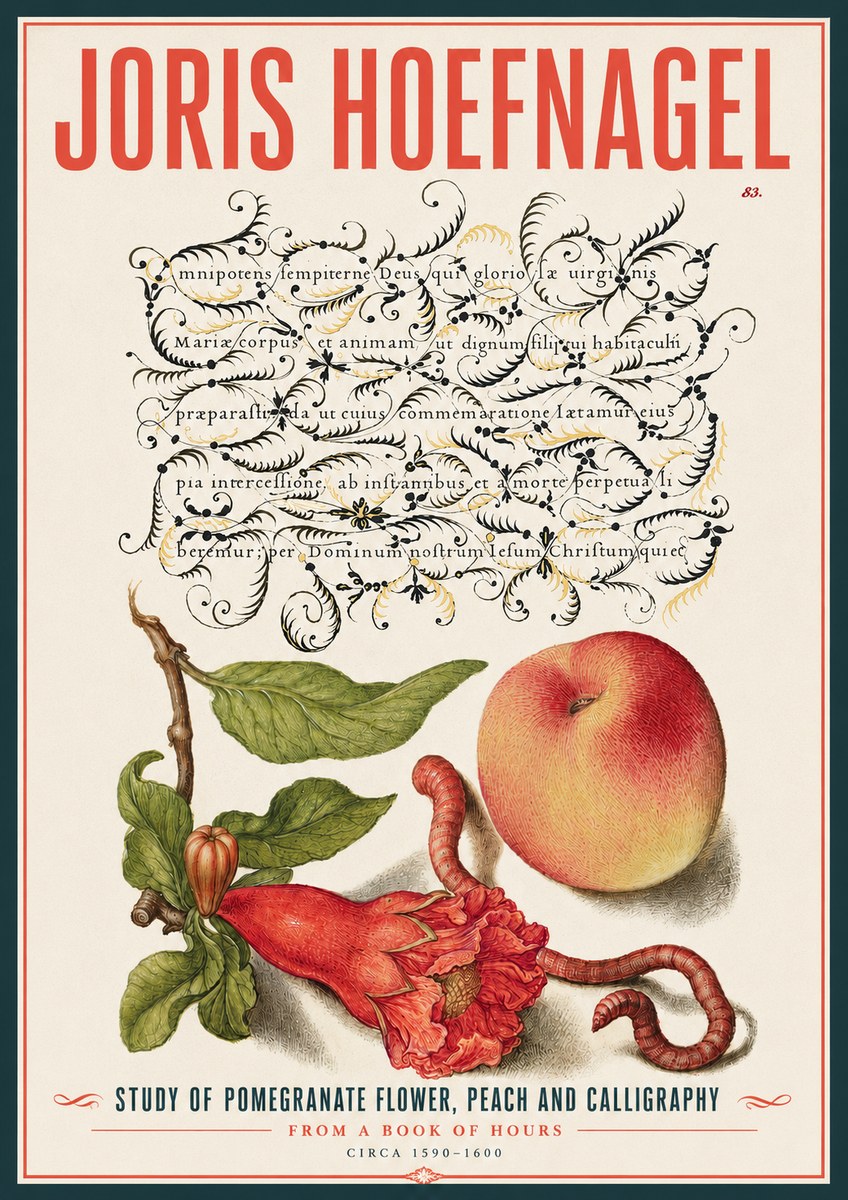 JORIS HOEFNAGEL
83.
mnipotens ſempiterne Deus qui glorio ſæ uirgi nis
Mariæ corpus et animam ut dignum filij tui habitaculū
præparaſti da ut cuius commemaratione lætamur eius
pia interceſſione ab inſtantibus et a morte perpetua li
beremur; per Dominum noſtrum Ieſum Chriſtum quiec
STUDY OF POMEGRANATE FLOWER, PEACH AND CALLIGRAPHY
FROM A BOOK OF HOURS
CIRCA 1590–1600